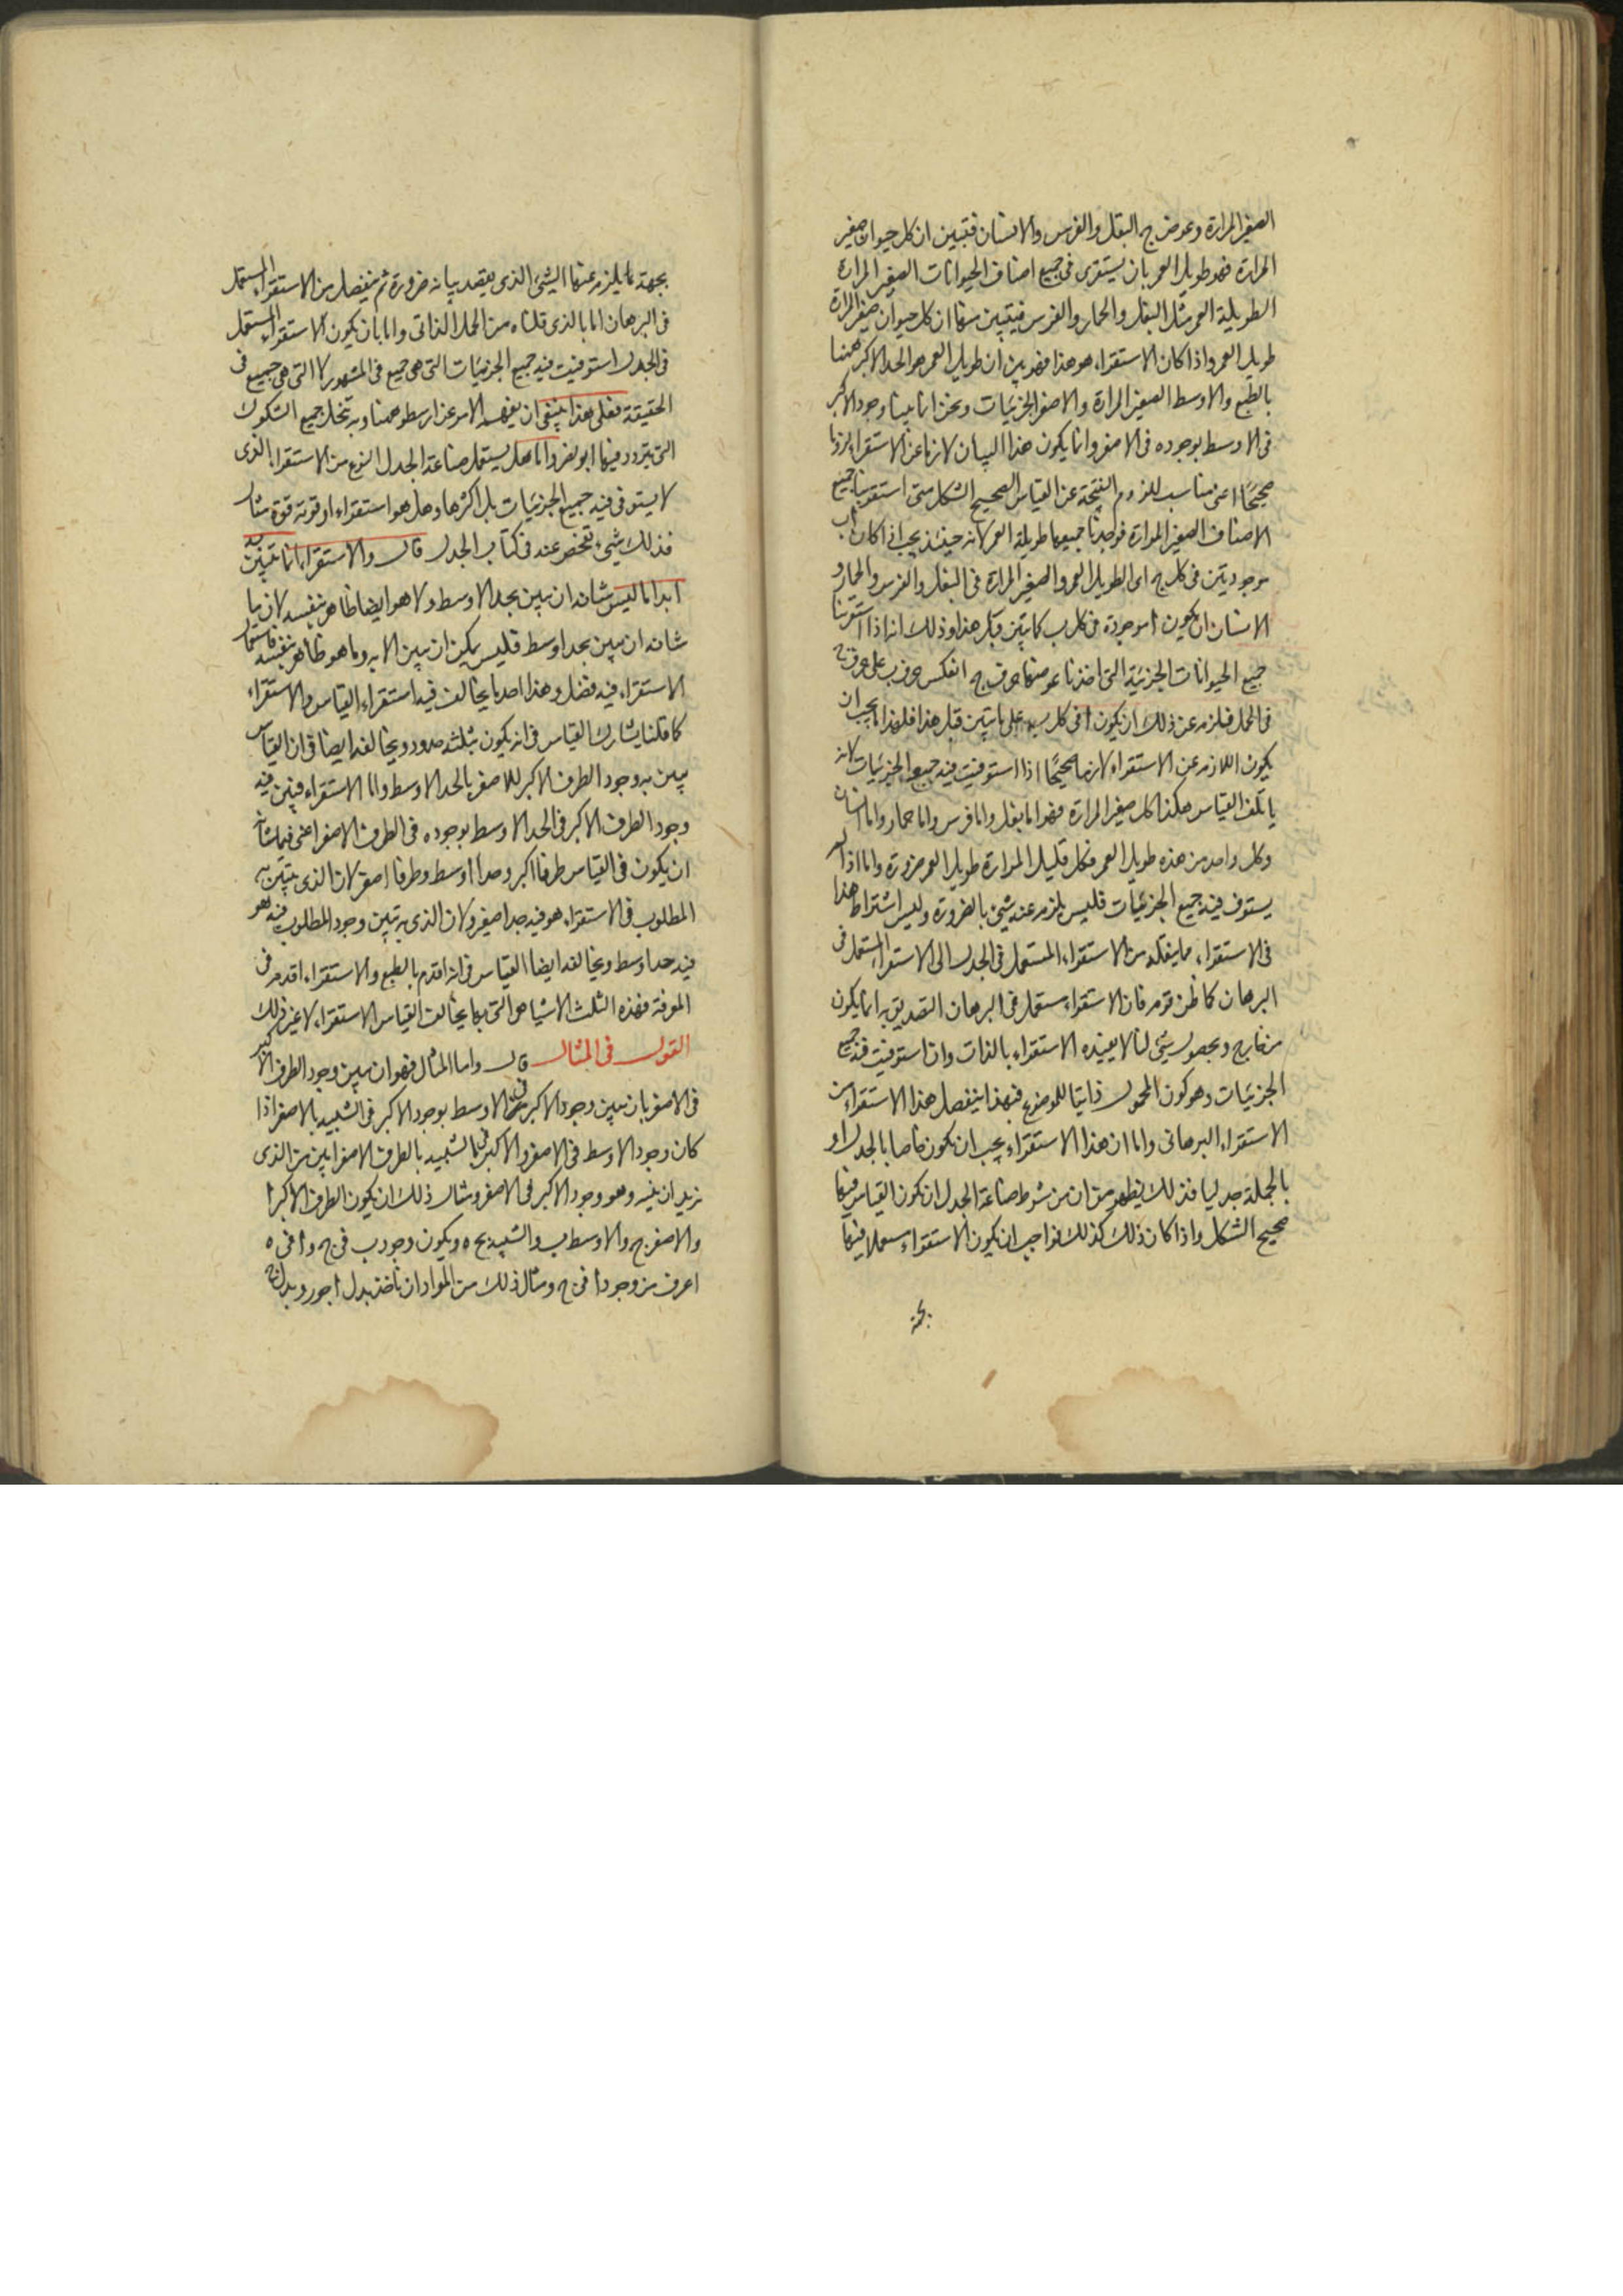 الصغير المرارة وعوض ج البغل والفرس والانسان فتبين ان كل حيوان صغير
المرارة فهو طويل العمر بان يستقرى فى جميع اصناف الحيوانات الصغير المرارة
الطويلة العمر مثل البغل والحمار والفرس فيتبين منها ان كل حيوان صغير المرارة
طويل العمر واذا كان الاستقراء هو هذا فهو بين ان طويل العمر هو الحد الاكبر ههنا
بالطبع والاوسط الصغير المرارة والاصغر الجزئيات ونحن انما بينا وجود الاكبر
فى الاوسط بوجوده فى الاصغر وانما يكون هذا البيان لازما عن الاستقراء لزوما
صحيحا اعنى مناسب للزوم النتيجة عن القياس الصحيح الشكل متى استقرينا جميع
الاصناف الصغير المرارة فوجدنا جميعها طويلة العمر لانه حينئذ يجب اذا كان اب
موجودتين فى كل ج اى الطويل العمر والصغير المرارة فى البغل والفرس والحمار و
الانسان ان يكون ا موجودة فى كل ب كما تبين قبل هذا وذلك انه اذا استقرينا
جميع الحيوانات الجزئية التى اخذنا عوضها حرف ج انعكس حرف ب على حرف ج
فى الحمل فيلزم عن ذلك ان يكون ا فى كل ب على ما تبين قبل هذا فلهذا ما يجب ان
يكون اللازم عن الاستقراء لازما صحيحا اذا استوفيت فيه جميع الجزئيات لانه
ياتلف القياس هكذا كل صغير المرارة فهو اما بغل واما فرس واما حمار واما انسان
وكل واحد من هذه طويل العمر فكل قليل المرارة طويل العمر ضرورة واما اذا لم
يستوف فيه جميع الجزئيات فليس يلزم عنه شىء بالضرورة وليس اشتراط هذا
فى الاستقراء مما ينقله من الاستقراء المستعمل فى الجدل الى الاستقراء المستعمل فى
البرهان كما ظن قوم فان الاستقراء يستعمل فى البرهان التصديق به انما يكون
من خارج وبحصول شىء لنا لا يفيده الاستقراء بالذات وان استوفيت فيه جميع
الجزئيات وهو كون المحمول ذاتيا للموضوع فبهذا ينفصل هذا الاستقراء من
الاستقراء البرهانى واما ان هذا الاستقراء يجب ان يكون خاصا بالجدل او
بالجملة جدليا فذلك يظهر من ان من شروط صناعة الجدل ان يكون القياس فيها
صحيح الشكل واذا كان ذلك كذلك فواجب ان يكون الاستقراء مستعملا فيها
بجهة
بجهة ما يلزم عنها الشىء الذى يقصد بيانه ضرورة ثم ينفصل من الاستقراء المستعمل
فى البرهان اما بالذى قلناه من الحمل الذاتى واما بان يكون الاستقراء المستعمل
فى الجدل استوفيت فيه جميع الجزئيات التى هى جميع فى المشهور لا التى هى جميع فى
الحقيقة فعلى هذا ينبغى ان يفهم الامر عن ارسطو ههنا وبه تنحل جميع الشكوك
التى يتردد فيها ابو نصر واما هل يستعمل صناعة الجدل النوع من الاستقراء الذى
لا يستوفى فيه جميع الجزئيات بل اكثرها وهل هو استقراء او قوته قوة مثال
فذلك شىء تفحص عنه فى كتاب الجدل قال والاستقراء انما يتبين به
ابدا ما ليس شانه ان يبين بحد الاوسط ولا هو ايضا ظاهر بنفسه لان ما
شانه ان يبين بحد اوسط فليس يمكن ان يبين الا به وما هو ظاهر بنفسه فاستعمال
الاستقراء فيه فضل وهذا احد ما يخالف فيه استقراء القياس والاستقراء
كما قلنا يشارك القياس فى انه يكون بثلثة حدود ويخالفه ايضا فى ان القياس
يبين به وجود الطرف الاكبر للاصغر بالحد الاوسط واما الاستقراء فيبين فيه
وجود الطرف الاكبر فى الحد الاوسط بوجوده فى الطرف الاصغر اعنى فيما شانه
ان يكون فى القياس طرفا اكبر وحدا اوسط وطرفا اصغر لان الذى يتبين به
المطلوب فى الاستقراء هو فيه حدا صغير ولان الذى به تبين وجود المطلوب فيه هو
فيه حد اوسط ويخالفه ايضا القياس فى انه اقدم بالطبع والاستقراء اقدم فى
المعرفة فهذه الثلث الاشيا هى التى بها يخالف القياس الاستقراء لا غير ذلك
القول فى المثال قال واما المثال فهو ان يبين وجود الطرف الاكبر
فى الاصغر بان يبين وجود الاكبر فى الاوسط بوجود الاكبر فى الشبيه بالاصغر اذا
كان وجود الاوسط فى الاصغر والاكبر فى الشبيه بالطرف الاصغر ابين من الذى
نريد ان نبينه وهو وجود الاكبر فى الاصغر ومثال ذلك ان يكون الطرف الاكبر ا
والاصغر ج والاوسط ب والشبيه بج ه ويكون وجود ب فى ج وا فى ه
اعرف من وجود ا فى ج ومثال ذلك من المواد ان ناخذ بدل ا جور وبدل ج